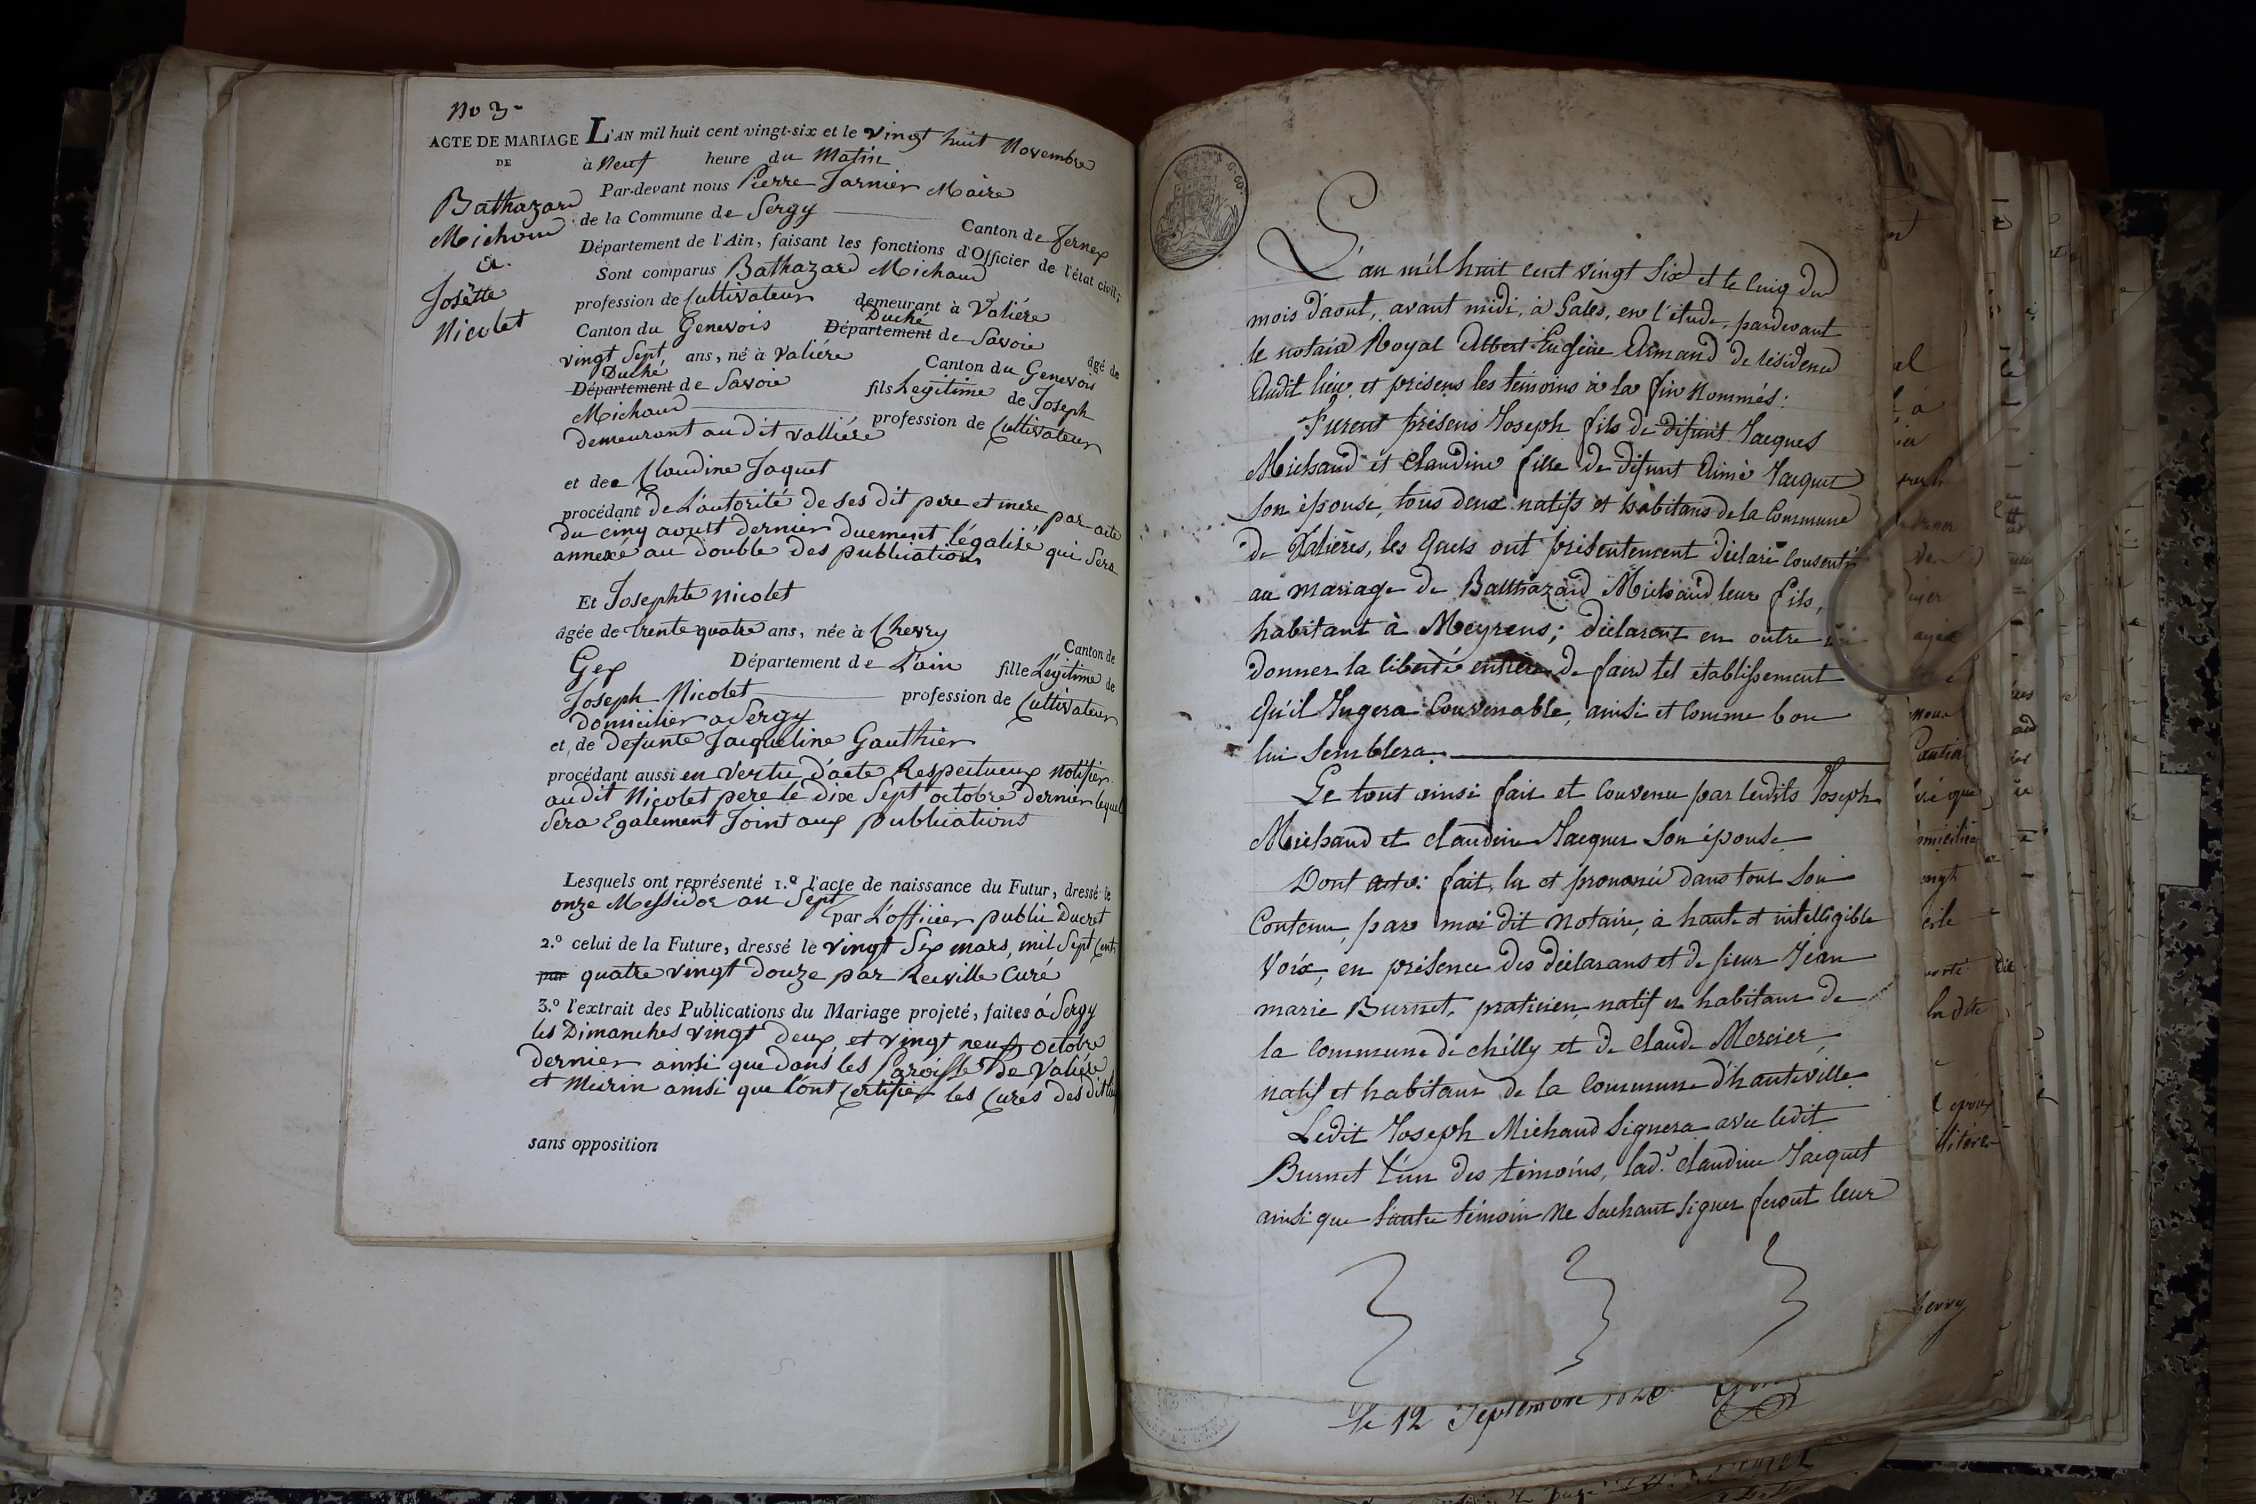 No 3.
ACTE DE MARIAGE
DE
Bathazard
Michaud
et
Josette
Nicolet
L'AN mil huit cent vingt-six et le vingt huit Novembre
à neuf heure du Matin
Par-devant nous Pierre Jarnier Maire
de la Commune de Sergy Canton de Fernex
Département de l'Ain, faisant les fonctions d'Officier de l'état civil;
Sont comparus Bathazard Michaud
profession de Cultivateur demeurant à Valiére
Canton du Genevois Département Duché de Savoie âgé de
vingt Sept ans, né à Valiére Canton du Genevois
Département Duché de Savoie fils Legitime de Joseph
Michaud profession de Cultivateur
demeurant au dit valliére
et dee Claudine Jaquet
procédant de L'autorité de ses dit pere et mere par acte
du cinq aoust dernier duement légalisé qui sera
annexé au double des publications
Et Josephte Nicolet
âgée de trente quatre ans, née à Chevry Canton de
Gex Département de L'ain fille Légitime de
Joseph Nicolet profession de Cultivateur
domicilier a Sergy
et de defunte Jacqueline Gauthier
procédant aussi en vertu d'acte Respectueux notifier
audit Nicolet pere le dix Sept octobre dernier lequel
sera Egalement Joint aux publications
Lesquels ont représenté 1.º l'acte de naissance du Futur, dressé le
onze Messidor an Sept par L'officier public Ducret
2.º celui de la Future, dressé le vingt Six mars, mil Sept Cent
par quatre vingt douze par Curé
3.º l'extrait des Publications du Mariage projeté, faites à Sergy
les Dimanches vingt deux, et vingt neuf octobre
dernier ainsi que dans les Paroisses de Valiére
et Meirin ainsi que l'ont Certifier les Curés des dit
sans opposition
L'an mil huit cent vingt six et le cinq du
mois d'aout, avant midi, à Sales, en l'étude, pardevant
le notaire Royal Albert Eugène Armand de résidence
audit lieu et présens les témoins à la fin nommés:
Furent présens Joseph fils de défunt Jacques
Michaud et Claudine fille de défunt Aimé Jacquet
son épouse, tous deux natifs et habitans de la Commune
de Valières, les quels ont présentement déclaré consentir
au mariage de Balthazard Michaud leur fils,
habitant à Meyrens; déclarent en outre lui
donner la liberté entière de faire tel etablissement
qu'il Jugera Convenable, ainsi et comme bon
lui semblera.
Le tout ainsi fait et convenu par lesdits Joseph
Michaud et claudine Jacquet son épouse
Dont acte: fait, lu et prononcé dans tout son
Contenu, par moi dit notaire, à haute et intelligible
voix, en présence des déclarans et de sieur Jean
marie Burnet, praticien, natif et habitant de
la commune de chilly et de claude Mercier,
natif et habitant de la commune d'hauteville
Ledit Joseph Michaud signera avec ledit
Burnet l'un des témoins, lad.e claudine Jacquet
ainsi que l'autre témoin ne sachant signer feront leur
le 12 Septembre